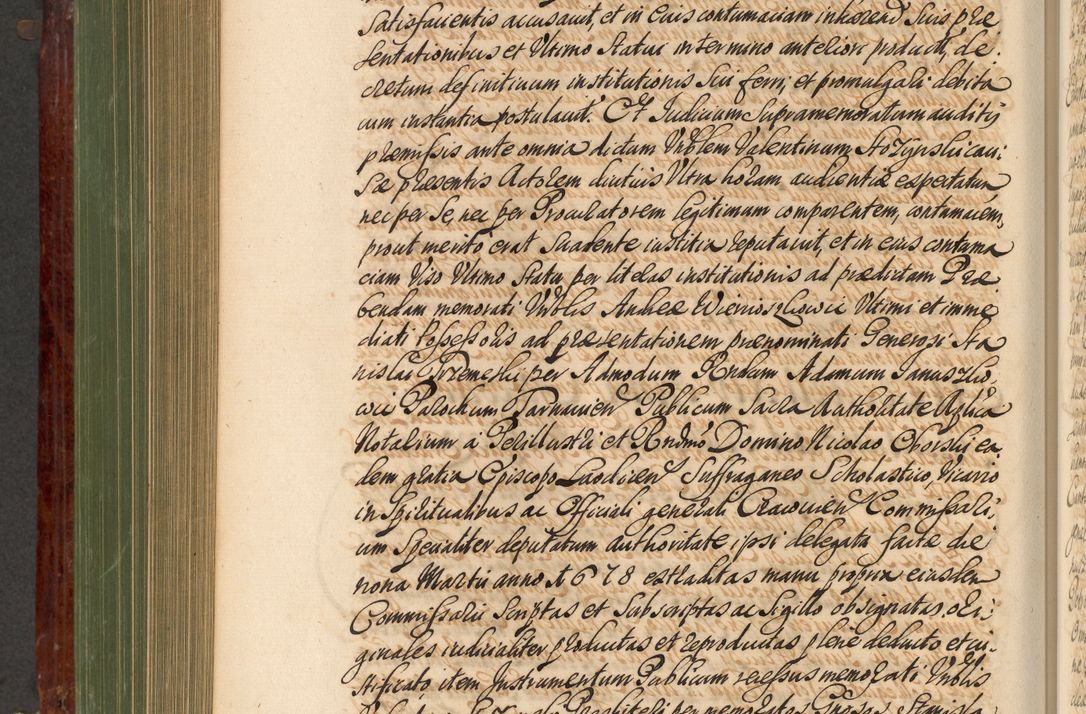 Satisfacientis accusavit, et in eius contumaciam inhærend. suis præ
sentationibus et Ultimo Statui in termino anteriori product, de:
cretum definitivum institutionis sui ferri, et promulgari debita
cum instantia postulavit. Et Judicium Supramemoratum auditis
præmissis ante omnia dictum Vrblem Valentinum cau:
sæ præsentis Actorem diutius Ultra horam audientiæ expectatum
nec per Se, nec per Procuratorem legitimum comparentem, contumacem,
prout merito erat Suadente iustitia reputavit, et in eius contuma
ciam Viso Ultimo Statu per literas institutionis ad prædictam Præ
bendam memorati Vrblis Andreæ Ultimi et imme
diati Possessoris ad præsentationem prænominati Generosi Sta
nislai Trzemeski per Admodum Rndum Adamum Januszko:
wic Parochum Tarnavien Publicum Sacra Authoritate Aplica
Notarium a Perillustri et Rndmo Domino Nicolao Oborski ea
dem gratia Episcopo Laodicien Suffraganeo Scholastico, Vicario
in Spiritualibus ac Officiali generali Cracovien Commissari:
um Specialiter deputatum authoritate ipsi delegata factæ die
nona Martii anno 1678 extraditas manu propria eiusdem
Commissarii Scriptas et Subscriptas ac Sigillo obsignatas, ori:
ginales iudicialiter productas et reproductas plene deducto et iu:
stificato item Instrumentum Publicum recessus memorati Vrblis
Presbiteri per memoratos Gnosos Stanisla